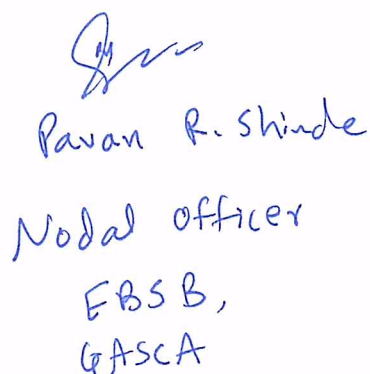 Pavan R. Shinde
Nodal Officer
EBSB,
GASCA